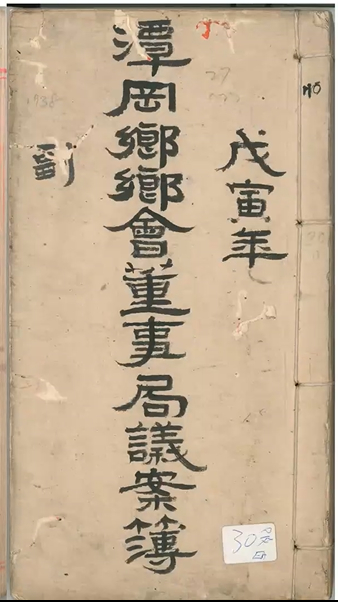 戊寅年
潭岡鄉鄉會董事局議案簿
副
1938
30